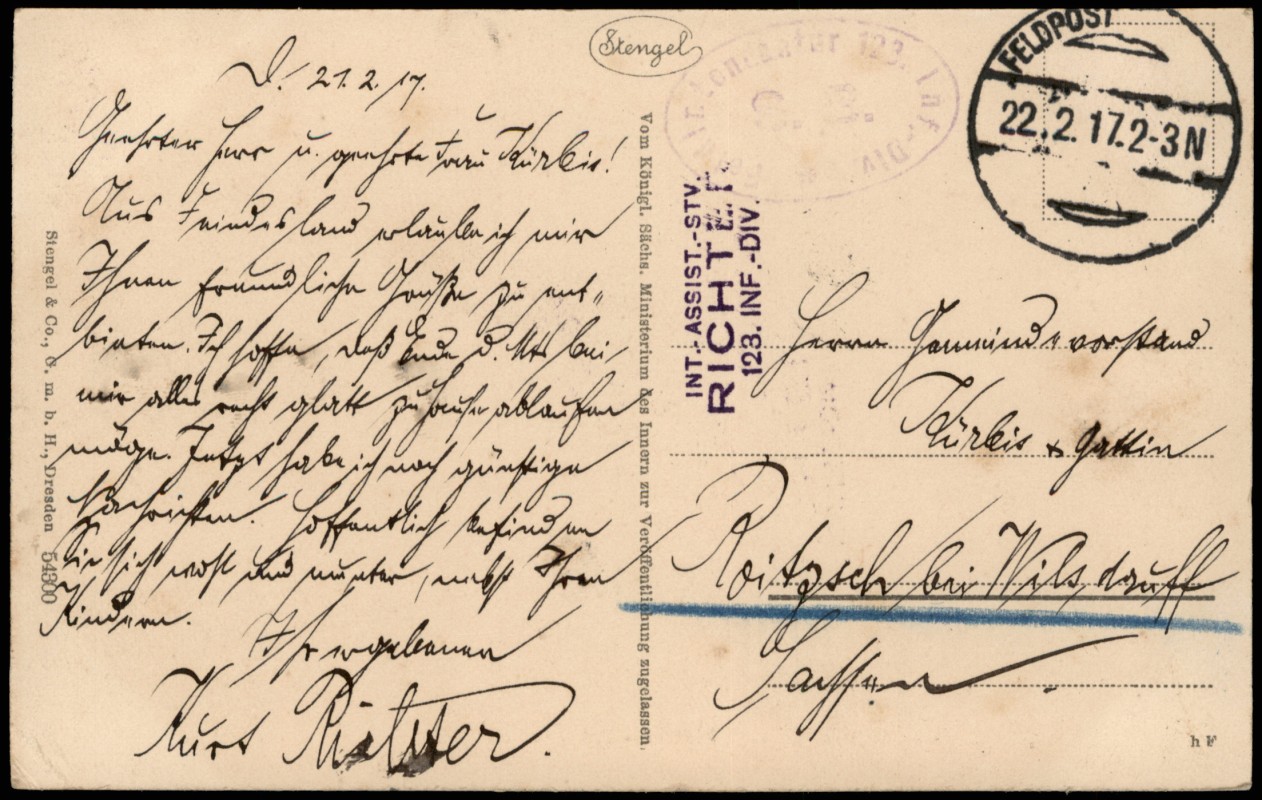 Stengel
D. 21.2.17.
Geehrter Herr u. geehrte Frau Kürbis!
Aus Feindesland erlaube ich mir
Ihnen freundliche Grüße zu ent-
bieten. Ich hoffe, daß Ende d. Mts bei
mir alles recht glatt zu Hause ablaufen
möge. Jetzt habe ich noch günstige
Nachrichten. Hoffentlich befinden
Sie sich wohl und munter, nebst Ihren
Kindern.
Ihr ergebener
Kurt Richter.
Stengel & Co., G. m. b. H., Dresden 54300
Vom Königl. Sächs. Ministerium des Innern zur Veröffentlichung zugelassen.
123. Inf.-Div.
INT.-ASSIST.-STV.
RICHTER
123. INF.-DIV.
FELDPOST
22.2.17.2-3N
Herrn Gemeindevorstand
Kürbis & Gattin
Roitzsch bei Wilsdruff
Sachsen.
h F